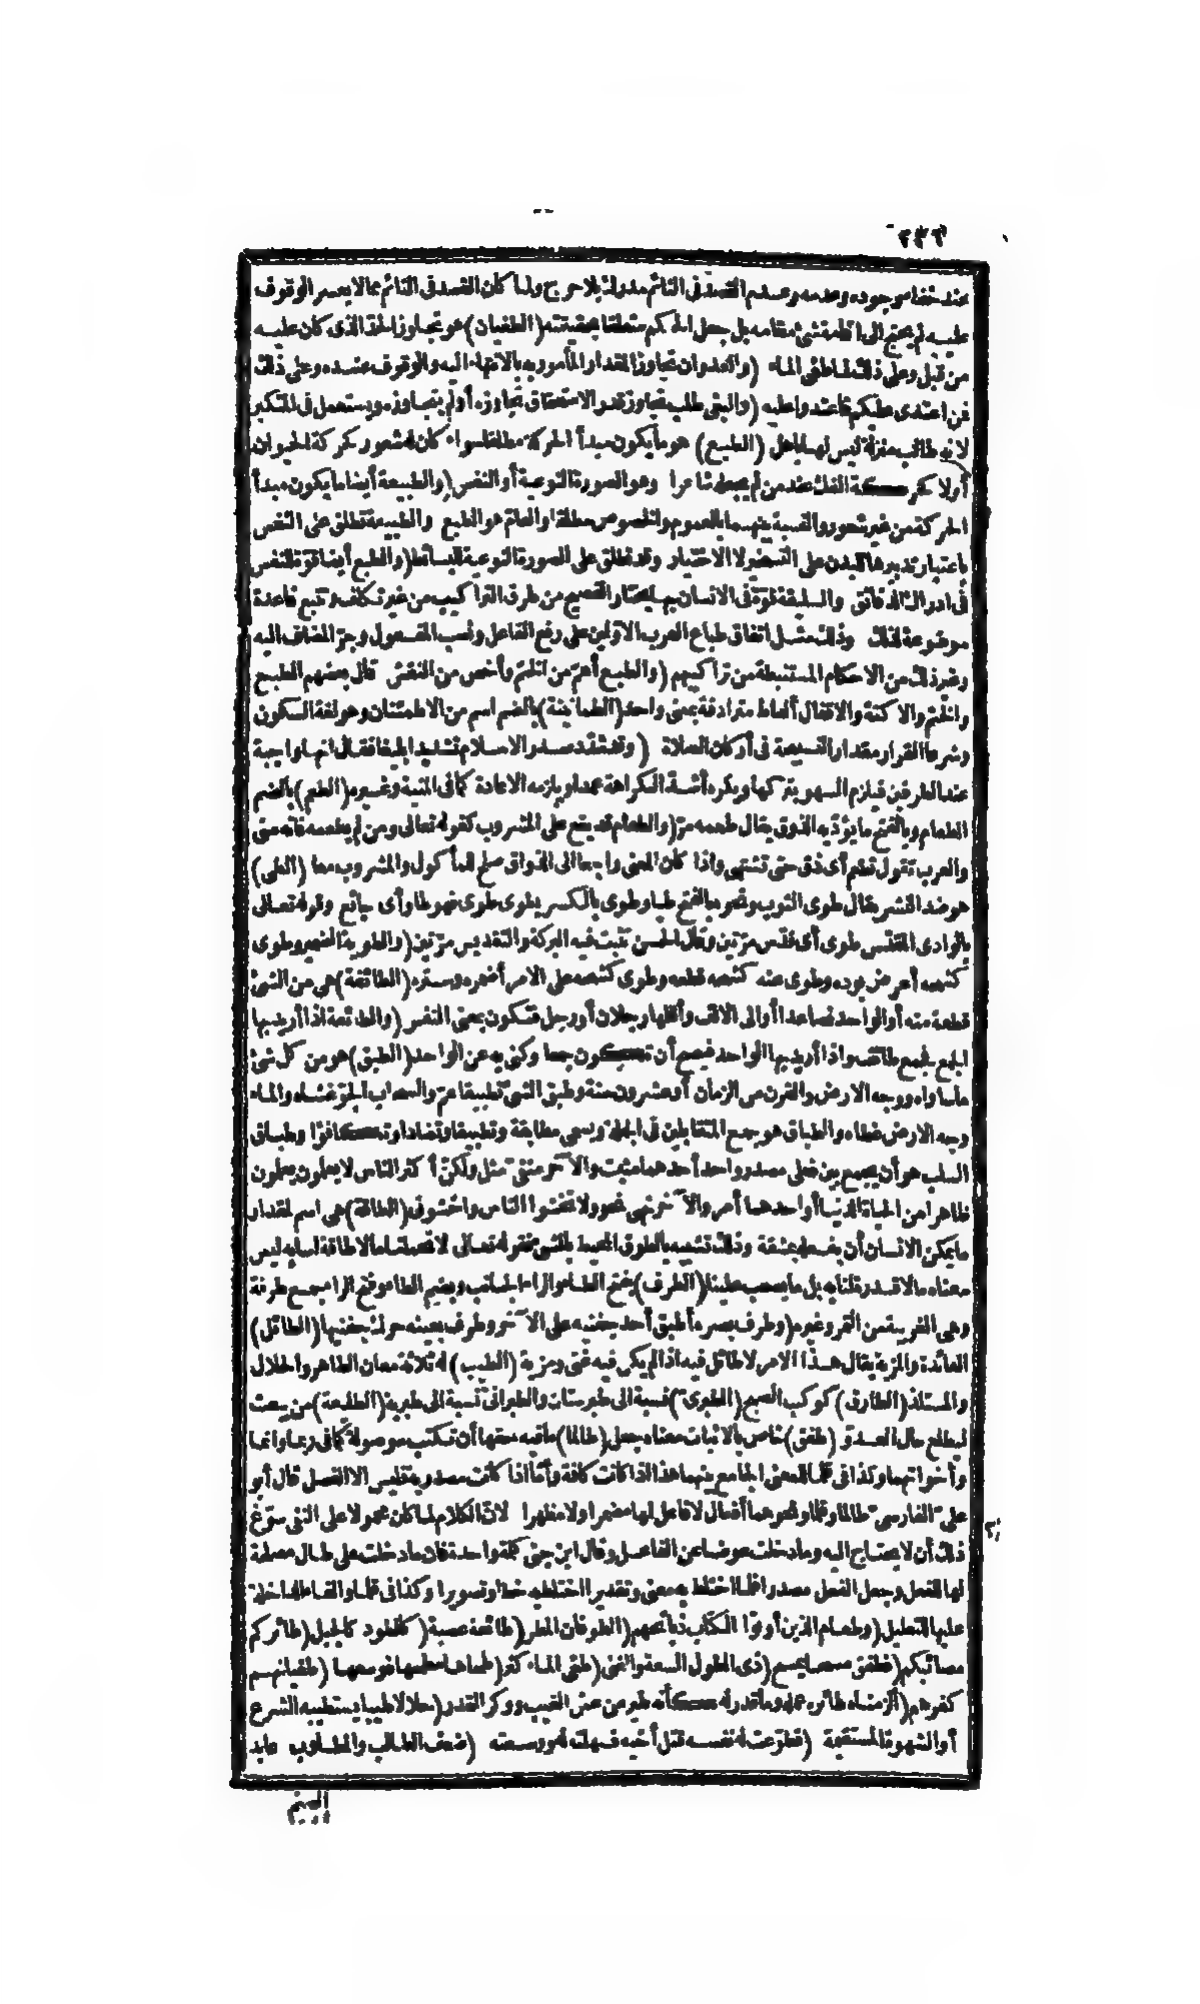 ٢٣٦
عند خفاء وجوده وعدمه وعدم القصد في النائم مدرك بلا حرج ولما كان القصد في النائم مما لا يعسر الوقوف
عليه لم يحتج الى اقامة شئ مقامه بل جعل الحكم متعلقا بحقيقته (الطغيان) هو تجاوز الحد الذى كان عليه
من قبل وعلى ذلك لما طغى الماء (والعدوان تجاوز المقدار المأمور به بالانتهاء اليه والوقوف عنده وعلى ذلك
فمن اعتدى عليكم فاعتدوا عليه (والبغى طلب تجاوز قدر الاستحقاق تجاوزه أولم يتجاوزه ويستعمل فى المتكبر
لانه طالب منزلة ليس لها باهل (الطبع) هو ما يكون مبدأ الحركة مطلقا سواء كان له شعور كحركة الحيوان
أولا كحركة الفلك عند من لم يجعله شاعرا وهو الصورة النوعية أو النفس (والطبيعة أيضا ما يكون مبدأ
الحركة من غير شعور والنسبة بينهما بالعموم والخصوص مطلقا والعام هو الطبع والطبيعة تطلق على النفس
باعتبار تدبيرها للبدن على التسخير لا الاختيار وقد تطلق على الصورة النوعية للبسائط (والطبع أيضا قوة للنفس
فى ادراك الدقائق والسليقة قوة فى الانسان بها يختار الفصيح من طرق التراكيب من غير تكلف وتتبع قاعدة
موضوعة لذلك وذلك مثل اتفاق طباع العرب الاولين على رفع الفاعل ونصب المفعول وجر المضاف اليه
وغير ذلك من الاحكام المستنبطة من تراكيبهم (والطبع أعم من الختم وأخص من النقش قال بعضهم الطبع
والختم والاكنة والاقفال ألفاظ مترادفة بمعنى واحد (الطمأنينة) بالضم اسم من الاطمئنان وهو لغة السكون
وشرعا القرار مقدار التسبيحة فى أركان الصلاة (وقد شدد صدر الاسلام تشديدا بليغا فقال انها واجبة
عند الطرفين فيلزم السهو بتركها ويكره أشد الكراهة عمدا ويلزمه الاعادة كما فى المنية وغيره (الطعم) بالضم
الطعام وبالفتح ما يؤديه الذوق يقال طعمه مر (والطعام قد يقع على المشروب كقوله تعالى ومن لم يطعمه فانه منى
والعرب تقول تطعم أى ذق حتى تشتهى واذا كان المعنى راجعا الى الذواق صلح للمأكول والمشروب معا (الطى)
هو ضد النشر يقال طوى الثوب ونحوه بالفتح طيا وطوى بالكسر يطوى طوى فهو طاو أى جائع وقوله تعالى
بالوادى المقدس طوى أى قدس مرتين وقال الحسن ثبتت فيه البركة والتقديس مرتين (والطوية الضمير وطوى
كشحه أعرض بوده وطوى عنه كشحه قطعه وطوى كشحه على الامر أضمره وستره (الطائفة) هى من الشئ
قطعة منه أو الواحد فصاعدا أو الى الالف وأقلها رجلان أو رجل فتكون بمعنى النفس (والطائفة اذا أريد بها
الجمع فجمع طائف واذا أريد بها الواحد فيصح أن تكون جمعا وكنى به عن الواحد (الطبق) هو من كل شئ
ما ساواه ووجه الارض والقرن من الزمان أو عشرون سنة وطبق الشئ تطبيقا عم والسحاب الجو غشاه والماء
وجه الارض غطاه والطباق هو جمع المتقابلين فى الجملة ويسمى مطابقة وتطبيقا وتضادا وتكافؤا وطباق
السلب هو أن يجمع بين فعلى مصدر واحد أحدهما مثبت والآخر منفى مثل ولكن أكثر الناس لا يعلمون يعلمون
ظاهرا من الحياة الدنيا أو احدهما أمر والآخر نهى نحو ولا تخشوا الناس واخشونى (الطاقة) هى اسم لمقدار
ما يمكن الانسان أن يفعله بمشقة وذلك تشبيه بالطوق المحيط بالشئ فقوله تعالى لا تحملنا ما لا طاقة لنا به ليس
معناه ما لا قدرة لنا به بل ما يصعب علينا (الطرف) بفتح الطاء والراء الجانب وبضم الطاء وفتح الراء جمع طرفة
وهى الغريبة من التمر وغيره (وطرف بصره أطبق أحد جفنيه على الآخر وطرف بعينه حرك جفنيها (الطائل)
الفائدة والمزية يقال هذا الامر لا طائل فيه اذا لم يكن فيه غنى ومزية (الطيب) له ثلاثة معان الطاهر والحلال
والمستلذ (الطارق) كوكب الصبح (الطبرى) نسبة الى طبرستان والطبرانى نسبة الى طبرية (الطليعة) من يبعث
ليطلع حال العدو (طفق) خاص بالاثبات معناه جعل (طالما) ما فيه حقها أن تكتب موصولة كما فى ربما وانما
وأخواتهما وكذا فى قلما للمعنى الجامع بينهما هذا اذا كانت كافة وأما اذا كانت مصدرية فليس الا الفصل قال أبو
على الفارسى طالما وقلما ونحوهما أفعال لا فاعل لها مضمرا ولا مظهرا لان الكلام لما كان محمولا على النفى سوغ
ذلك أن لا يحتاج اليه وما دخلت عوضا عن الفاعل وقال ابن جنى كلمة واحدة فان ما دخلت على طال مصلحة
لها للفعل وجعل الفعل مصدرا فلما اختلط به معنى وتقديرا اختلط به خطا وتصويرا وكذا فى قلما والفاء الداخلة
عليها للتعليل (وطعام الذين أوتوا الكتاب ذبائحهم (الطوفان المطر (طائفة عصبة (كالطود كالجبل (طائركم
مصائبكم (فطفق مسحا يمسح (ذى الطول السعة والغنى (طغى الماء كثر (طحاها دحاها فوسعها (طغيانهم
كفرهم (ألزمناه طائره عمله وما قدر له كأنه طير من عش الغيب ووكر القدر (حلالا طيبا يستطيبه الشرع
أو الشهوة المستقيمة (فطوعت له نفسه قتل أخيه فسهلته له ووسعته (ضعف الطالب والمطلوب عابد
الصنم